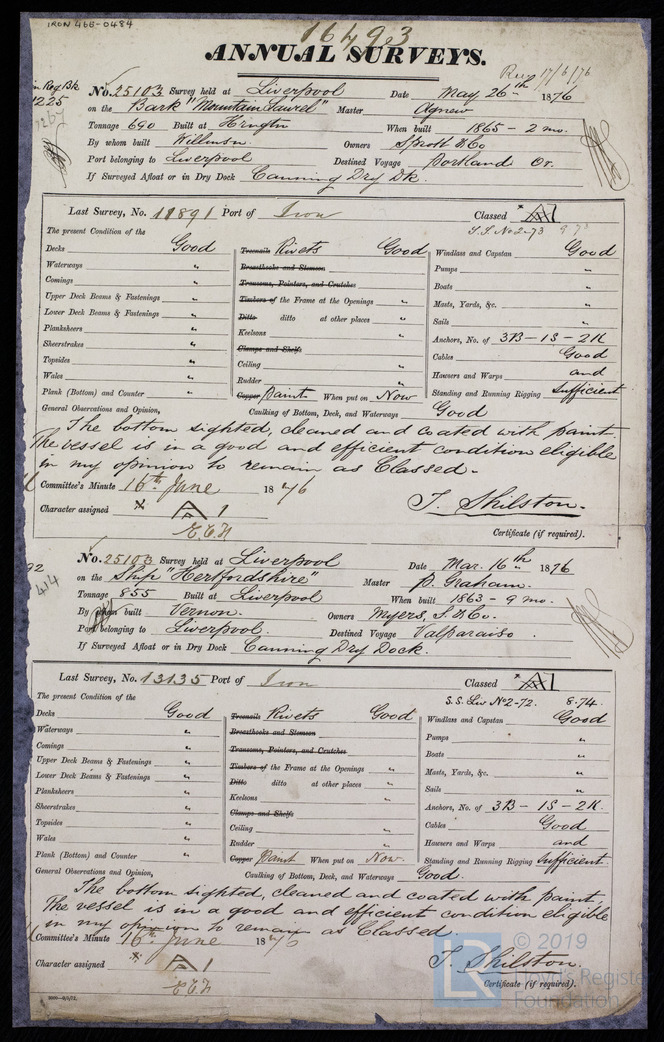 IRON 466-0484
16493
ANNUAL SURVEYS.
in Reg Bk
1225
No. 25103 Survey held at Liverpool Date May 26th 1876
on the Bark "Mountain Laurel" Master Agnew
Tonnage 690 Built at Hington When built 1865 - 2 mo.
By whom built Willmson. Owners Sprott & Co
Port belonging to Liverpool Destined Voyage Portland Or.
If Surveyed Afloat or in Dry Dock Canning Dry Dk.
Last Survey, No. 11891 Port of Iron Classed A1
S.S. No 2-73
The present Condition of the
Decks Good Treenails Rivets Good Windlass and Capstan Good
Waterways " Breasthooks and Stemson Pumps "
Comings " Transoms, Pointers, and Crutches Boats "
Upper Deck Beams & Fastenings " Timbers of the Frame at the Openings " Masts, Yards, &c. "
Lower Deck Beams & Fastenings " Ditto ditto at other places " Sails "
Planksheers " Keelsons " Anchors, No. of 3B - 1S - 2K
Sheerstrakes " Clamps and Shelfs Cables Good
Topsides " Ceiling " Hawsers and Warps and
Wales " Rudder " Standing and Running Rigging Sufficient
Plank (Bottom) and Counter " Copper Paint When put on Now
General Observations and Opinion, Caulking of Bottom, Deck, and Waterways Good
The bottom sighted, cleaned and coated with paint.
The vessel is in a good and efficient condition eligible
in my opinion to remain as Classed.
Committee's Minute 16th June 1876
Character assigned A 1
T. Skilston.
Certificate (if required).
No. 25103 Survey held at Liverpool Date Mar. 16th 1876
on the Ship "Hertfordshire" Master P. Graham.
Tonnage 855 Built at Liverpool When built 1863 - 9 mo.
By whom built Vernon. Owners Myers, S. & Co.
Port belonging to Liverpool. Destined Voyage Valparaiso.
If Surveyed Afloat or in Dry Dock Canning Dry Dock.
Last Survey, No. 13135 Port of Iron Classed A1
S.S. Liv No 2-72. 8-74.
The present Condition of the
Decks Good Treenails Rivets Good Windlass and Capstan Good
Waterways " Breasthooks and Stemson Pumps "
Comings " Transoms, Pointers, and Crutches Boats "
Upper Deck Beams & Fastenings " Timbers of the Frame at the Openings " Masts, Yards, &c. "
Lower Deck Beams & Fastenings " Ditto ditto at other places " Sails "
Planksheers " Keelsons " Anchors, No. of 3B - 1S - 2K.
Sheerstrakes " Clamps and Shelfs Cables Good
Topsides " Ceiling " Hawsers and Warps and
Wales " Rudder " Standing and Running Rigging Sufficient.
Plank (Bottom) and Counter " Copper Paint When put on Now.
General Observations and Opinion, Caulking of Bottom, Deck, and Waterways Good.
The bottom sighted, cleaned and coated with paint.
The vessel is in a good and efficient condition eligible
in my opinion to remain as Classed.
Committee's Minute 16th June 1876
Character assigned A 1
T. Skilston.
Certificate (if required).
© 2019
Lloyd's Register
Foundation